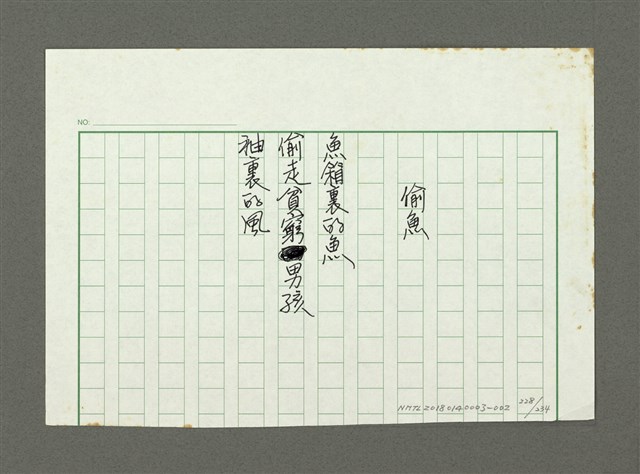 NO:
偷魚
魚箱裏的魚
偷走貧窮男孩
袖裏的風
NMTL20180140003-002
228/234